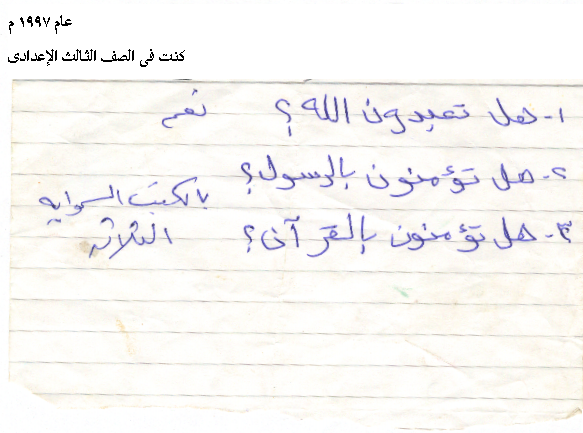 عام ١٩٩٧ م
كنت فى الصف الثالث الإعدادى
١- هل تعبدون الله؟ نعم
٢- هل تؤمنون بالرسول؟
بالكتب السماوية
٣- هل تؤمنون بالقرآن؟ الثلاثة